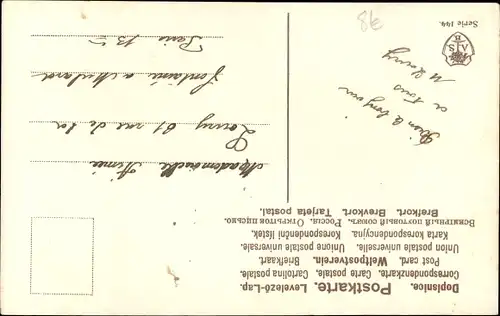 Dopisnice. Postkarte. Levelező-Lap.
Correspondenzkarte. Carte postale. Cartolina postale.
Post card. Weltpostverein. Briefkaart.
Union postale universelle. Unione postale universale.
Karta korespondencyjna. Korespondenční lístek.
Всемірный почтовый союзъ. Россія. Открытое письмо.
Brefkort. Brevkort. Tarjeta postal.
Mademoiselle Aimée
Loury 61 rue de la
Fontaine a Mulard
Paris 13
à tous
M Loury
8€
A S
B
Serie 144.